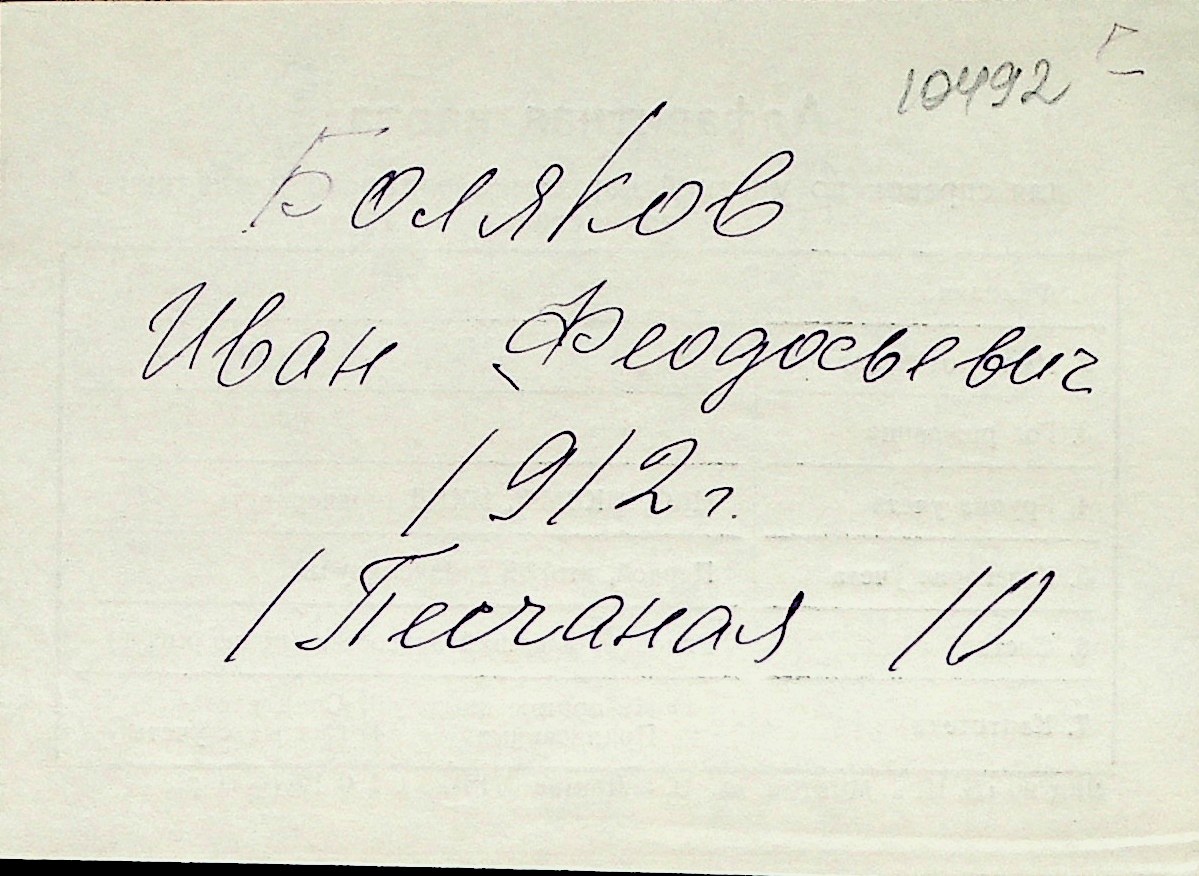 10492
Боляков
Иван Феодосьевич
1912 г.
1 Песчаная 10